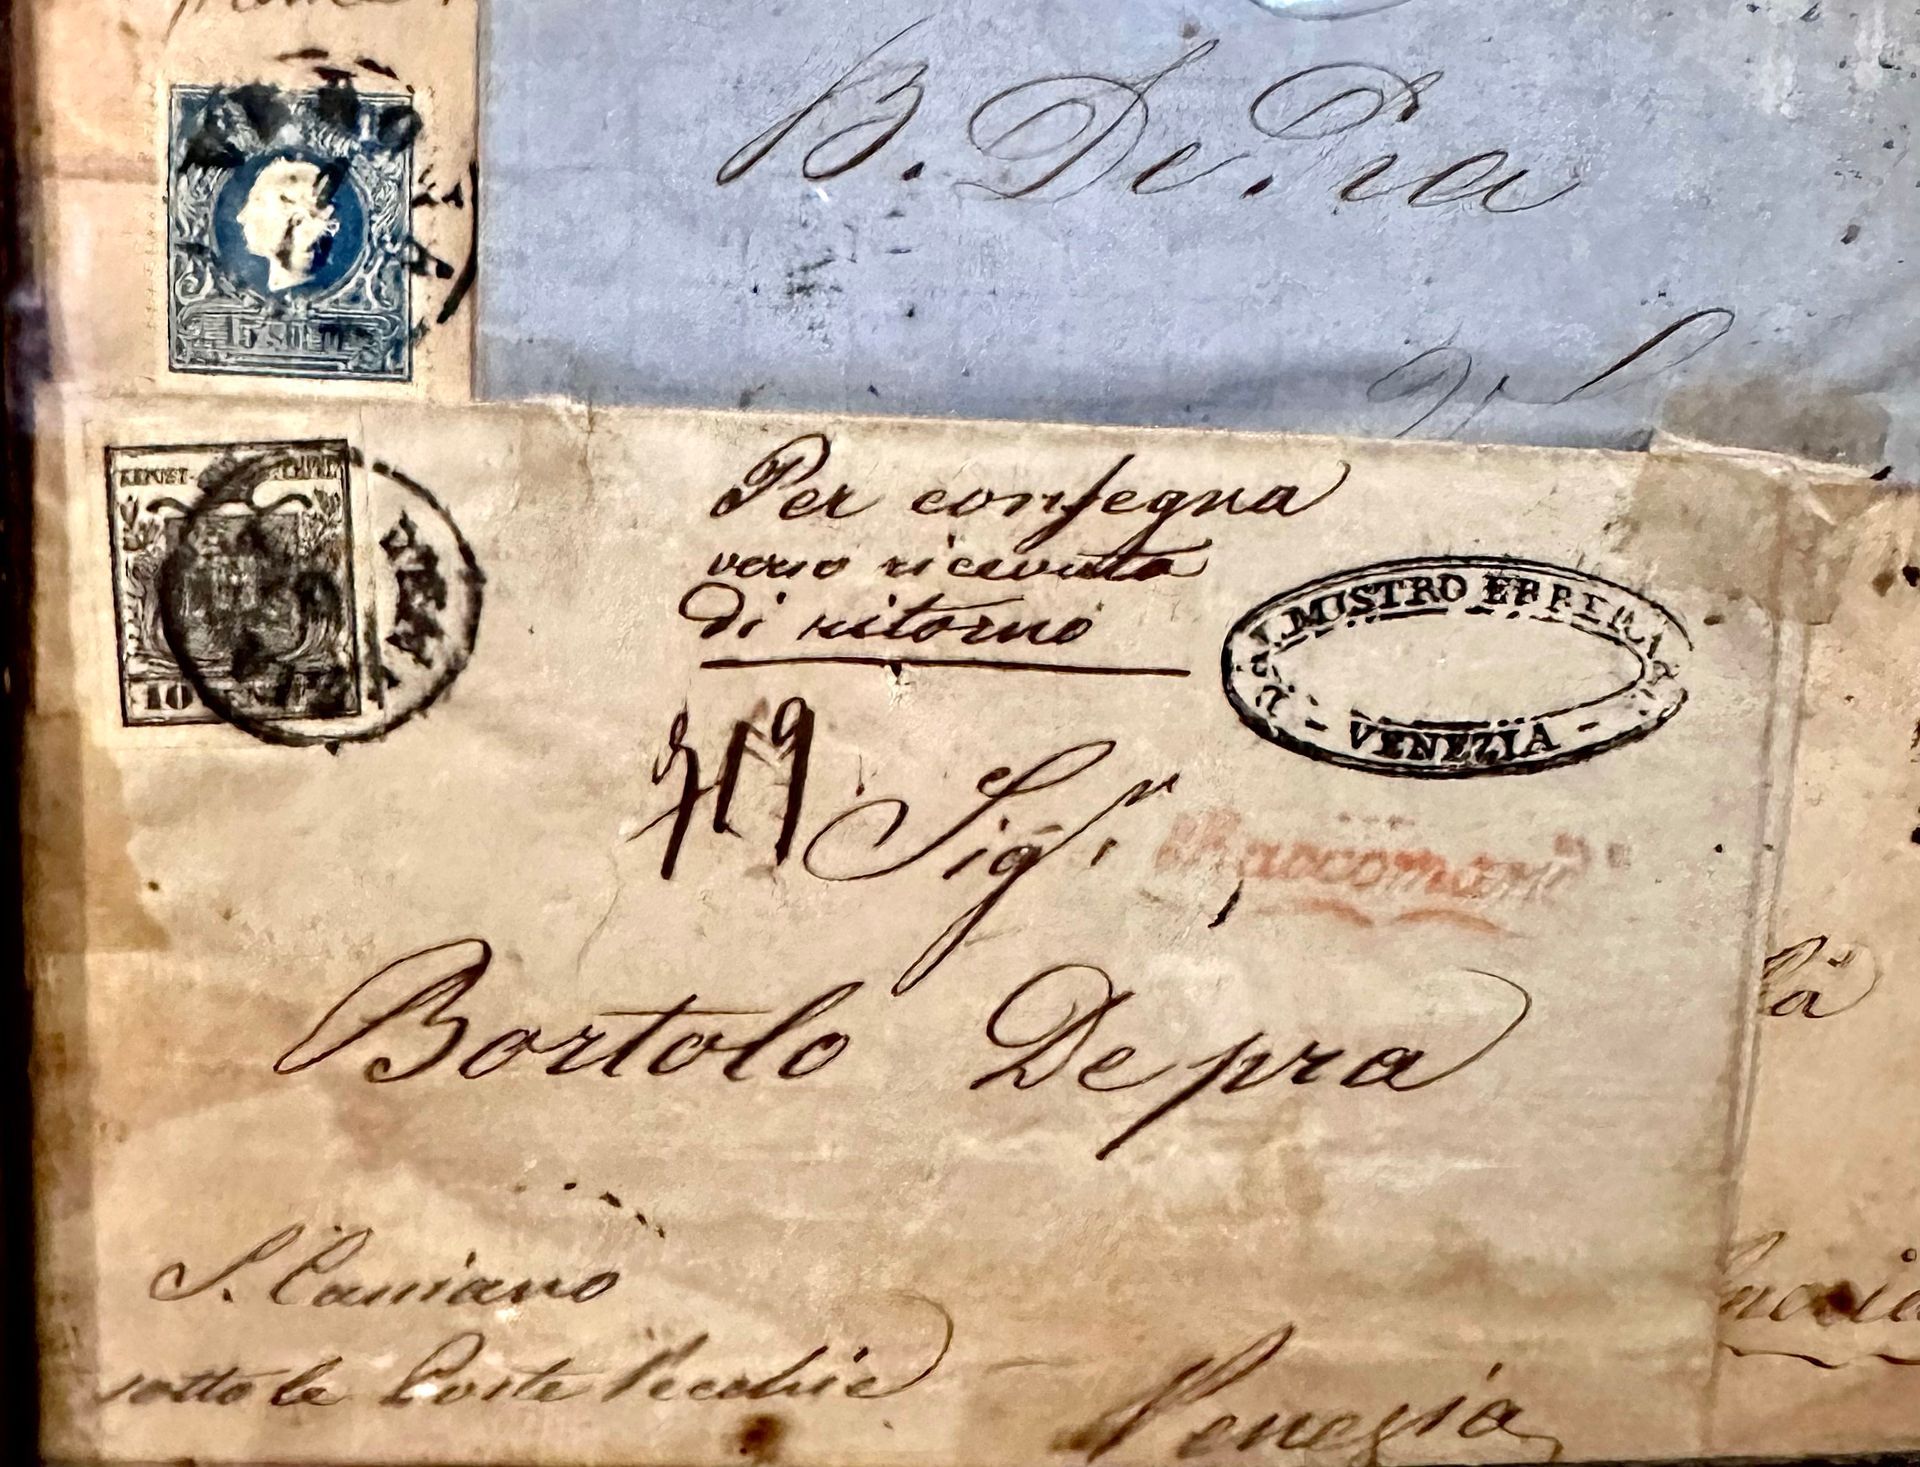 B. De. Pra
15 SOLDI
KKPOST-STEMPEL
10
Per consegna
verso ricevuta
di ritorno
MISTRO
VENEZIA
Sigr.
Raccomand
Bortolo Depra
S. Canciano
sotto le Poste Vecchie
Venezia
là